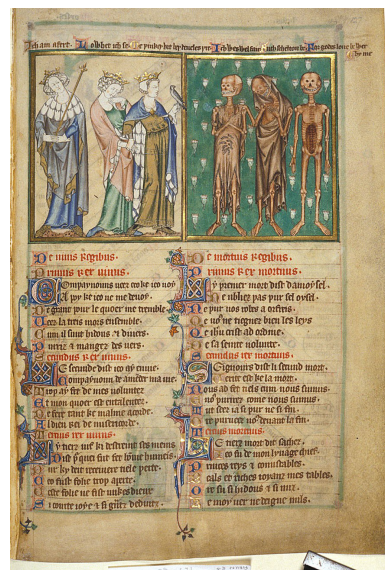 Ich am afert. Lo whet ich se. Me þinkes hit bey deueles þre. Ich wes wel fair. Such scheltou be. For godes loue be wer by me
De uiuis regibus.
Primus rex uiuus.
Compaynouns ueez ceo ke ieo uoy
A poy ke ieo ne me deuoy
De grant pour le quoer me tremble
Veez la treis mors ensemble.
Cum il sunt hidous & diuers.
Purriz & mangez des uers.
Secundus rex uiuus.
Le secunde dist ieo ay enuie
Compaynoun de amender ma uie
Trop ay fet de mes uolunter
E mon quoer est en talenter.
De fere tant ke malme acorde.
Al dieu rei de misericorde.
Tercius rex uiuus.
Ly tierz uif ki destreint ses meins
Dist purquei fu fet hom humeins.
Pur ky deit receiuere tele perte.
Ceo fust folie trop aperte.
Ceste folie ne fist unkes dieux
Si courte ioye & si grantz deduiz.
De mortuis regibus.
Primus rex mortuus.
Ly primer mort dist damoysel
Ne ubliez pas pur sel oysel.
Ne pur uos robes a orfreis.
Qe uous ne tiegnez bien les leys
Qe ihesu crist ad ordine.
De sa seinte uolunte.
Secundus rex mortuus.
Seignours dist li secund mort.
Verite est ke la mort.
Nous ad fet tels cum nous sumus.
Et uous purrirez come nous sumus
Tercius mortuus.
Le tierz mort dist sachez.
Ke ieo fu de mon lynage chief.
Princes reys & conustables.
Beals & riches ioyanz mes tables.
Ore su si hidous & si nuz.
Ke moy uer ne deigne nuls.